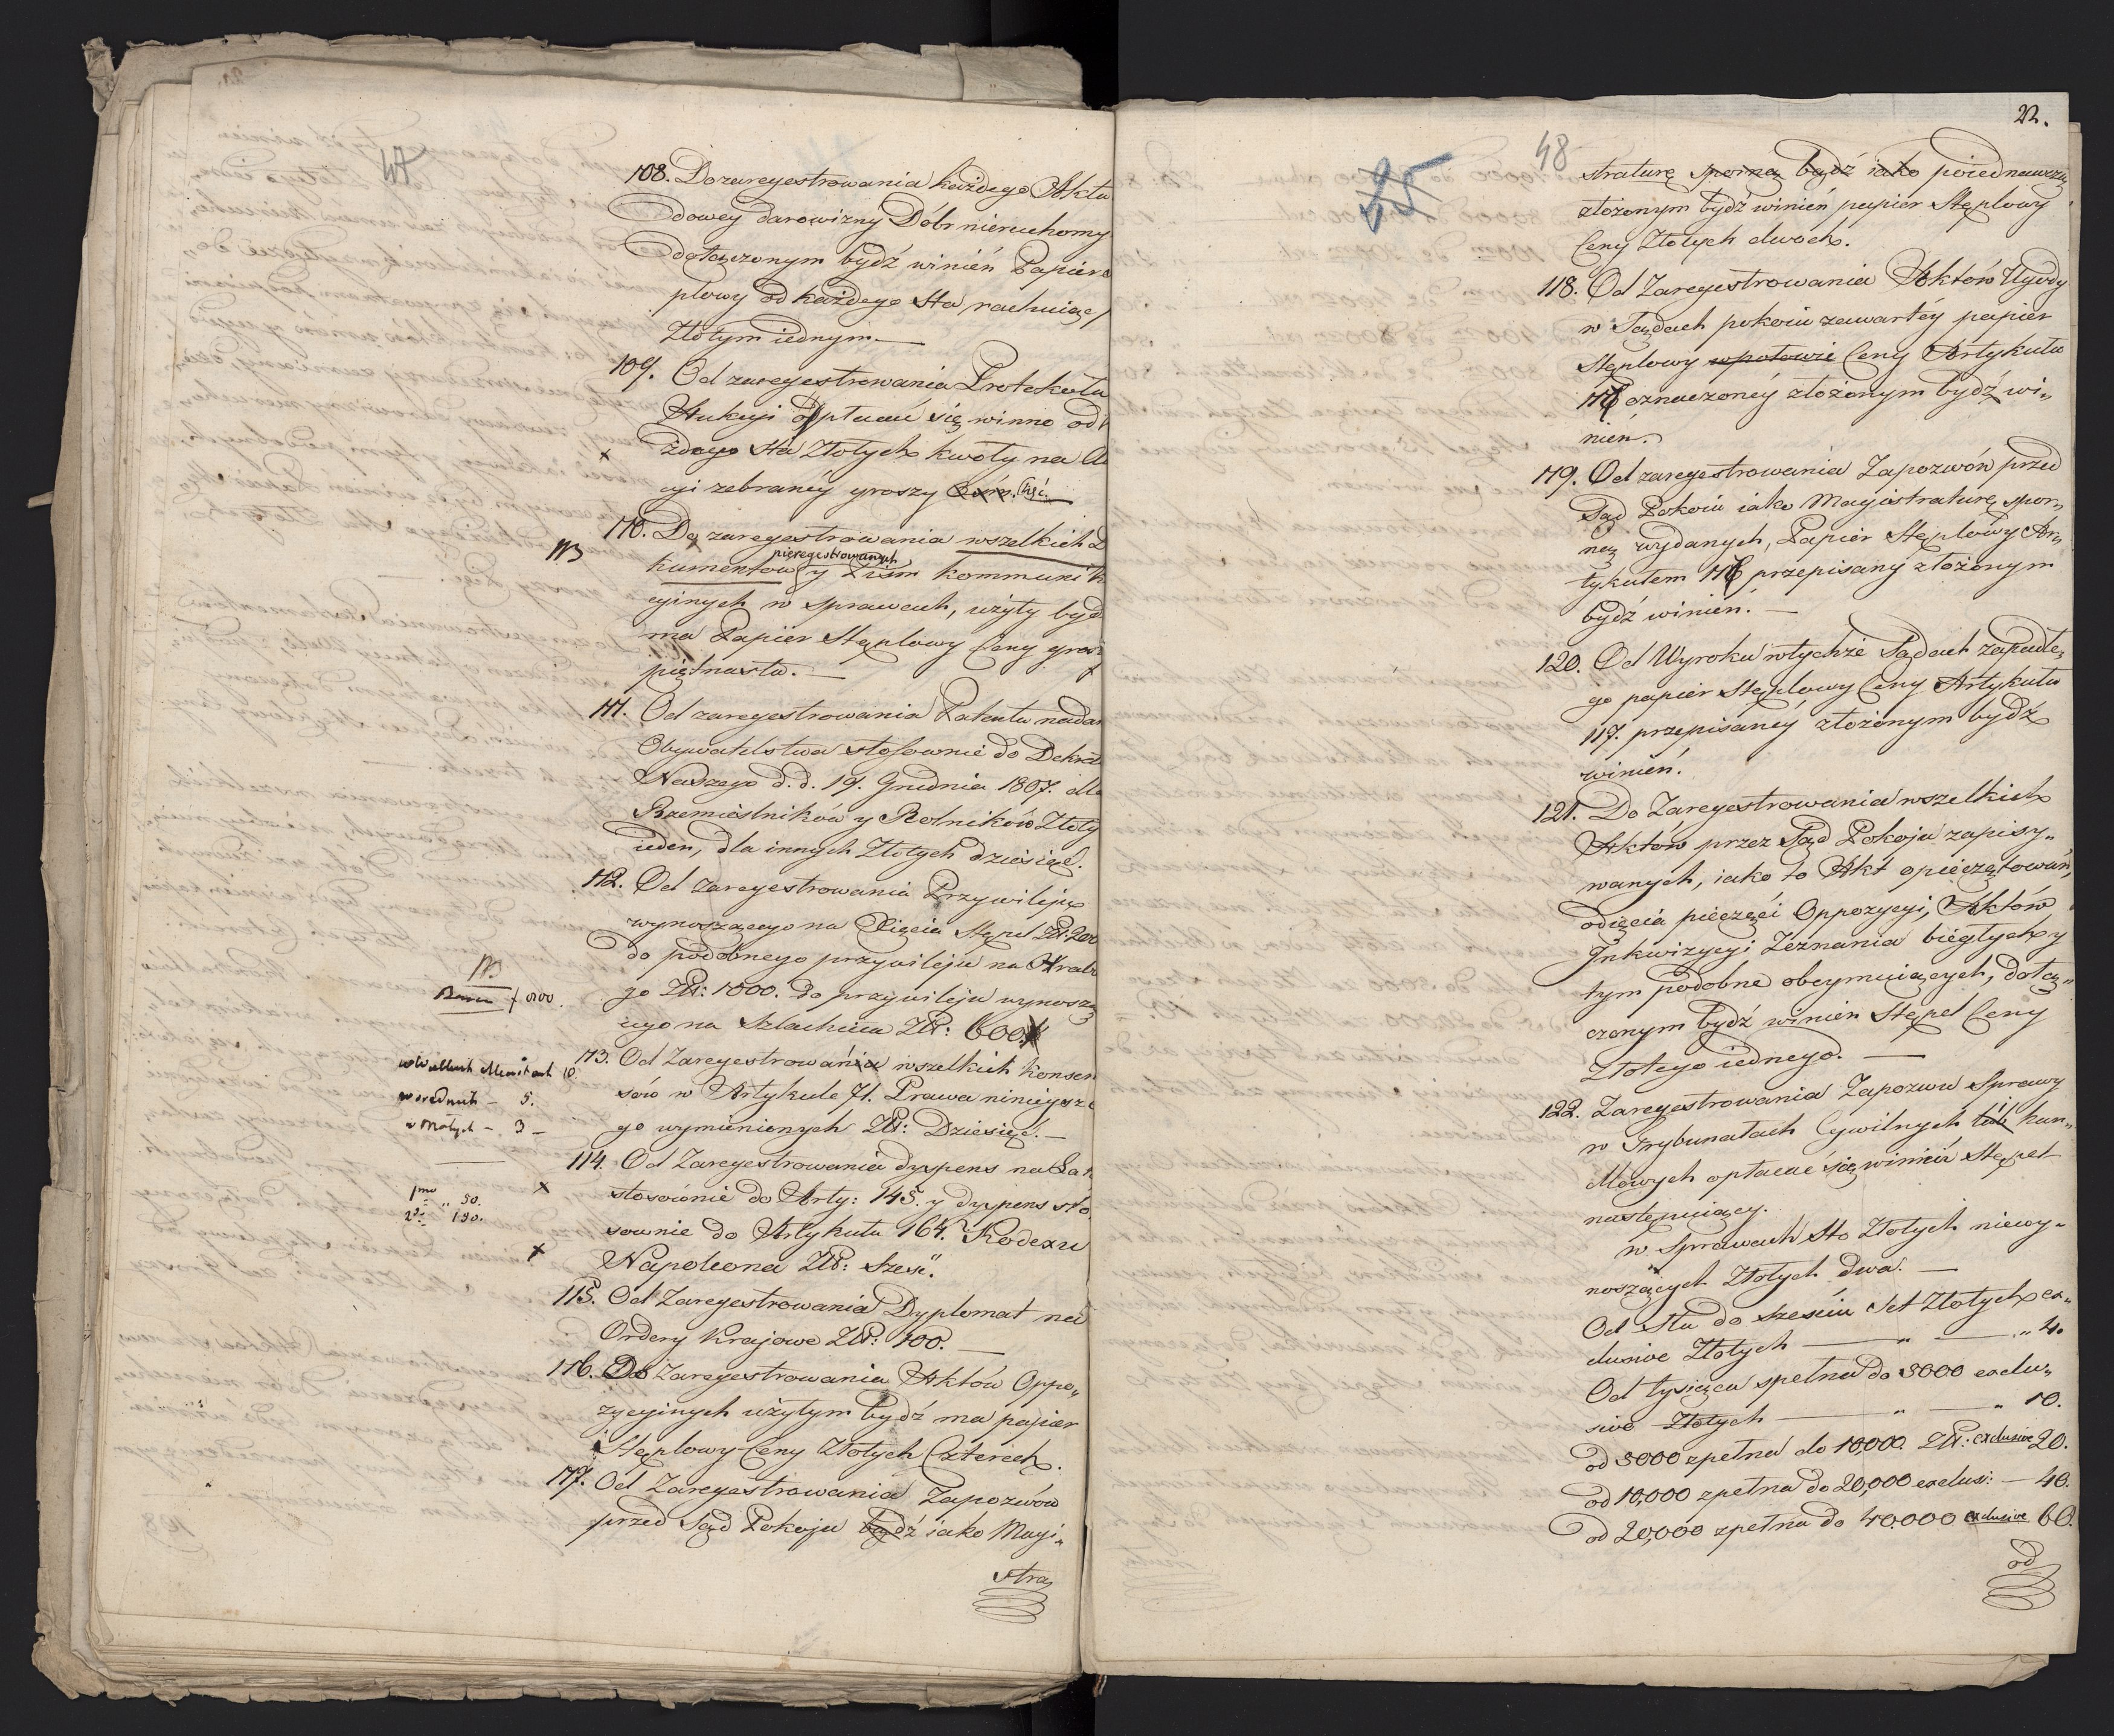 47
108. Do zaregestrowania każdego Aktu
dowey darowizny Dóbr nieruchomy
dołączonym bydź winień Papier
plowy od każdego sta rachuiąc
Złotym iednym. —
109. Od zaregestrowania Protokułu
Aukcyi opłacać się winno od
żdego sta Złotych kwoty na Au
x
cyi zebraney groszy
110. Do zaregestrowania wszelkich D
NB
pieregestrowanych
kumentow y Pism kommunik
cyinych w sprawach, użyty bydź
ma Papier Stęplowy Ceny grosz
piętnastu. —
111. Od zaregestrowania Patentu nadan
Obywatelstwa stosownie do Dekret
Naszego d. d. 19. Grudnia 1807. dla
Rzemieślników y Rolników Złoty
ieden, dla innych Złotych dziesięć.
112. Od zaregestrowania Przywileju
wynoszącego na Xięcia Stępel ZłP: 200
do podobnego przywileju na Hrab
NB
go ZłP: 1000. do przywileju wynoszą
cego na Szlachcica ZłP: 600.
113. Od Zaregestrowania wszelkich konsen
w Wielkich Miastach 10.
sów w Artykule 71. Prawa ninieysze
w srednich — 5.
go wymienionych ZłP: Dziesięć. —
w Małych — 3 —
114. Od Zaregestrowania dyspens na
stosownie do Arty: 145. y dyspens sto
x
1mo " 50.
2do " 150.
sownie do Artykułu 164. Kodexu
Napoleona ZłP: Sześć.
x
115. Od Zaregestrowania Dyplomat na
Ordery Krajowe ZłP: 100. —
116. Do Zaregestrowania Aktów Oppo„
zycyinych użytym bydź ma papier
Stęplowy Ceny Złotych Czterech.
117. Od Zaregestrowania Zapozwów
przed Sąd Pokoju bądź iako Magi„
stra
22.
25
48
straturę sporną bądź iako poiednawczą
złożonym bydź winień papier Stęplowy
Ceny Złotych dwóch.
118. Od Zaregestrowania Aktów Ugody
w Sądach pokoiu zawartéy papier
Stęplowy wpołowie Ceny Artykułu
oznaczonéy złożonym bydź wi„
nień.
119. Od zaregestrowania Zapozwów przed
Sąd Pokoiu iako Magistraturę spor„
ną wydanych, Papier Stęplowy Ar„
tykułem przepisany złożonym
bydź winień. —
120. Od Wyroku w tychże Sądach zapadłe„
go papier Stęplowy Ceny Artykułu
117. przepisanéy złożonym bydź
winień.
121. Do Zaregestrowania wszelkich
Aktów przez Sąd Pokoju zapisy„
wanych, iako to Akt opieczętowań,
odięcia pieczęći Oppozycyi, Aktów
Inkwizycyi Zeznania biegłych y
tym podobne obeymuiących, dołą„
czonym bydź winien Stępel Ceny
Złotego iednego. —
122. Zaregestrowania Zapozwu Sprawy
w Trybunałach Cywilnych lub han„
dlowych opłacać się winień Stępel
następuiący.
w Sprawach Sto Złotych niewy„
noszących Złotych dwa. —
Od Stu do sześciu Set Złotych ex„
clusive Złotych — " — " 4.
Od tysiąca spełna do 3000 exclu„
sive Złotych — " — " 10.
od 3000 zpełna do 10,000. ZłP: exclusive 20.
od 10,000 zpełna do 20,000 exclusi: — 40.
od 20,000 zpełna do 40,000 exclusive 60.
od